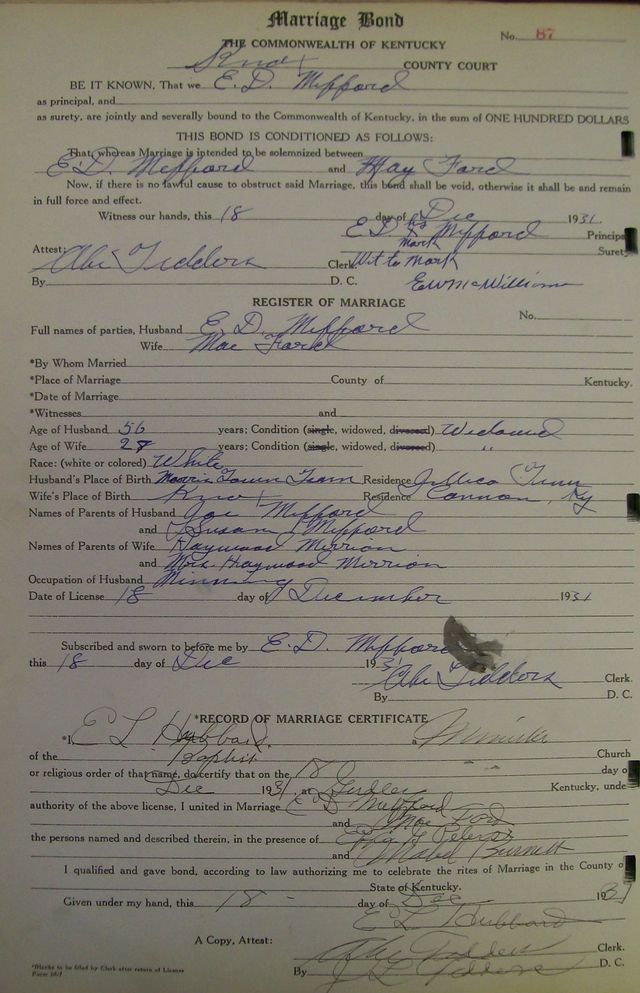 Marriage Bond
No. 87
THE COMMONWEALTH OF KENTUCKY
Knox COUNTY COURT
BE IT KNOWN, That we E. D. Mefford
as principal, and
as surety, are jointly and severally bound to the Commonwealth of Kentucky, in the sum of ONE HUNDRED DOLLARS
THIS BOND IS CONDITIONED AS FOLLOWS:
That, whereas Marriage is intended to be solemnized between
E. D. Mefford and May Ford
Now, if there is no lawful cause to obstruct said Marriage, this bond shall be void, otherwise it shall be and remain
in full force and effect.
Witness our hands, this 18 day of Dec 1931.
E D his X Mefford Principa
mark Surety
Attest:
Abe Fidders Clerk. Wit to Mark
By D. C. E W McWilliams
REGISTER OF MARRIAGE
No.
Full names of parties, Husband E. D. Mefford
Wife Mae Ford
*By Whom Married
*Place of Marriage County of Kentucky.
*Date of Marriage
*Witnesses and
Age of Husband 56 years; Condition (single, widowed, divorced) Widowed
Age of Wife 28 years; Condition (single, widowed, divorced) "
Race: (white or colored) White
Husband's Place of Birth Residence Jellico Tenn
Wife's Place of Birth Knox Residence Cannon, Ky
Names of Parents of Husband Joe Mefford
and Susan Mefford
Names of Parents of Wife Haywood Merrion
and Mrs. Haywood Merrion
Occupation of Husband Minning
Date of License 18 day of December 1931
Subscribed and sworn to before me by E. D. Mefford
this 18 day of Dec 1931
Abe Fidders Clerk.
By D. C.
*RECORD OF MARRIAGE CERTIFICATE
*I, E L Hubbard, a Minister
of the Baptist Church
or religious order of that name, do certify that on the 18 day o
Dec 1931, at Girdler Kentucky, unde
authority of the above license, I united in Marriage E D Mefford
and Mae Ford
the persons named and described therein, in the presence of Peters
and Mabel Burnett
I qualified and gave bond, according to law authorizing me to celebrate the rites of Marriage in the County o
State of Kentucky.
Given under my hand, this 18 - day of Dec 1931
E L Hubbard
A Copy, Attest: Abe Fidders Clerk.
By D. C.
*Blanks to be filled by Clerk after return of License
Form 10-1